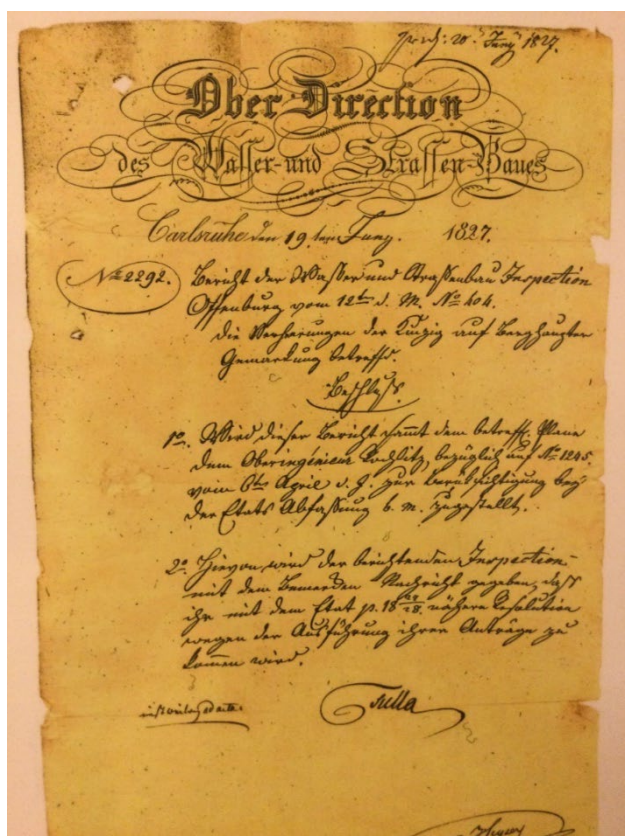 20. Juny 1827.
Ober Direction
des Wasser- und Strassen-Baues
Carlsruhe den 19ten Juny. 1827.
No 2292.
Bericht der Wasser und Straßenbau Inspection
Offenburg vom 12ten d. M. No 404.
die der Kinzig auf Berghaupter
Gemarkung betreffd.
Beschluss.
1o. Wird dieser Bericht sammt dem betreff. Plane
dem Oberingénieur Rochlitz, bezüglich auf No 1245.
vom 6ten April d. J. zur Berücksichtigung bey
der Etats Abfaßung b. m. zugestellt.
2o. Hievon wird der berichtenden Inspection
mit dem Bemerken Nachricht gegeben, daß
ihr mit dem Etat p. 18 27/28. nähere Resolution
wegen der Ausführung ihrer Anträge zu
kommen wird.
Tulla